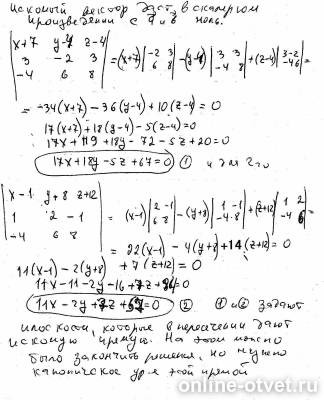 искомый вектор даст в скалярном
произведении с a и b ноль.
| x+7 y-4 z-4 |
| 3 -2 3 | = (x+7) | -2 3 | - (y-4) | 3 3 | + (z-4) | 3 -2 | =
| -4 6 8 | | 6 8 | | -4 8 | | -4 6 |
= -34(x+7) - 36(y-4) + 10(z-4) = 0
17(x+7) + 18(y-4) - 5(z-4) = 0
17x + 119 + 18y - 72 - 5z + 20 = 0
17x + 18y - 5z + 67 = 0 ① и для 2го
| x-1 y+8 z+12 |
| 1 2 -1 | = (x-1) | 2 -1 | - (y+8) | 1 -1 | + (z+12) | 1 2 | =
| -4 6 8 | | 6 8 | | -4 8 | | -4 6 |
= 22(x-1) - 4(y+8) + 14(z+12) = 0
11(x-1) - 2(y+8) + 7(z+12) = 0
11x - 11 - 2y - 16 + 7z + 84 = 0
11x - 2y + 7z + 57 = 0 ② ① и ② задают
плоскости, которые в пересечении дают
искомую прямую. На этом можно
было закончить решение, но нужно
каноническое ур-е этой прямой
online-otvet.ru